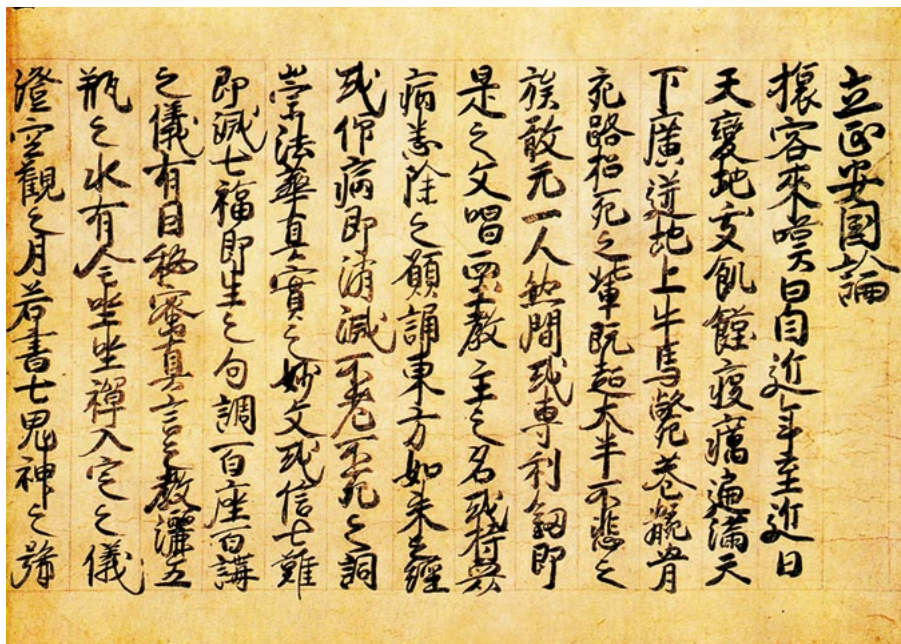 立正安國論
旅客來嘆曰自近年至近日
天變地夭飢饉疫癘遍滿天
下廣迸地上牛馬斃巷骸骨
充路招死之輩既超大半不悲之
族敢无一人然間或專利劔即
是之文唱西土教主之名或持衆
病悉除之願誦東方如來之經
或仰病即消滅不老不死之詞
崇法華真實之妙文或信七難
即滅七福即生之句調百座百講
之儀有因秘蜜真言之教灑五
瓶之水有全坐禪入定之儀
澄空觀之月若書七鬼神之號